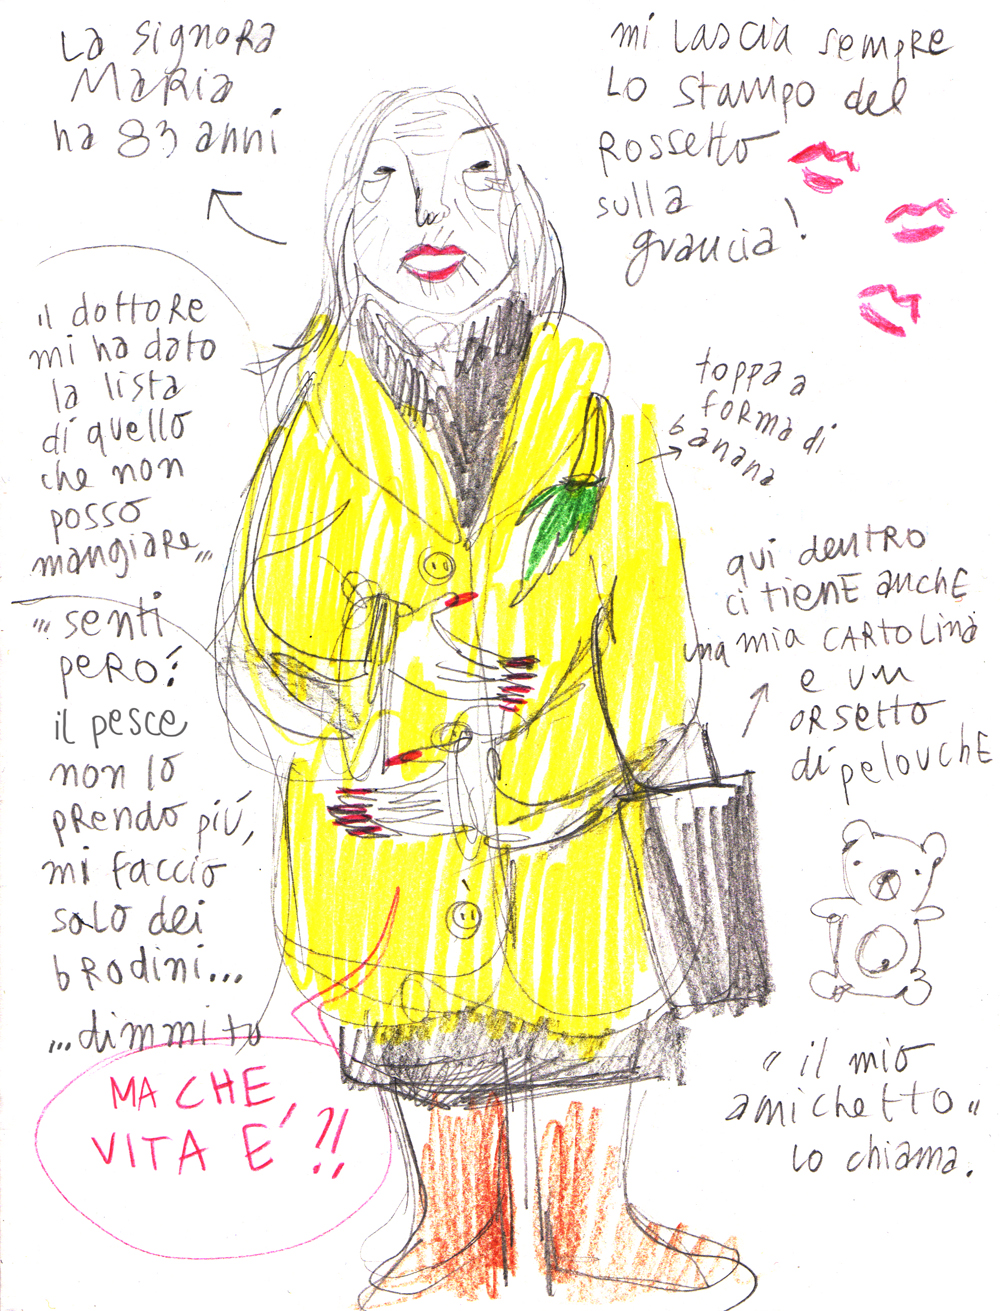 La signora
Maria
ha 83 anni
mi lascia sempre
lo stampo del
rossetto
sulla
guancia!
"il dottore
mi ha dato
la lista
di quello
che non
posso
mangiare"
toppa a
forma di
banana
qui dentro
ci tiene anche
una mia cartolina
e un
orsetto
di pelouche
"senti
però:
il pesce
non lo
prendo più,
mi faccio
solo dei
brodini...
...dimmi tu
MA CHE
VITA E´?!!
"il mio
amichetto"
lo chiama.